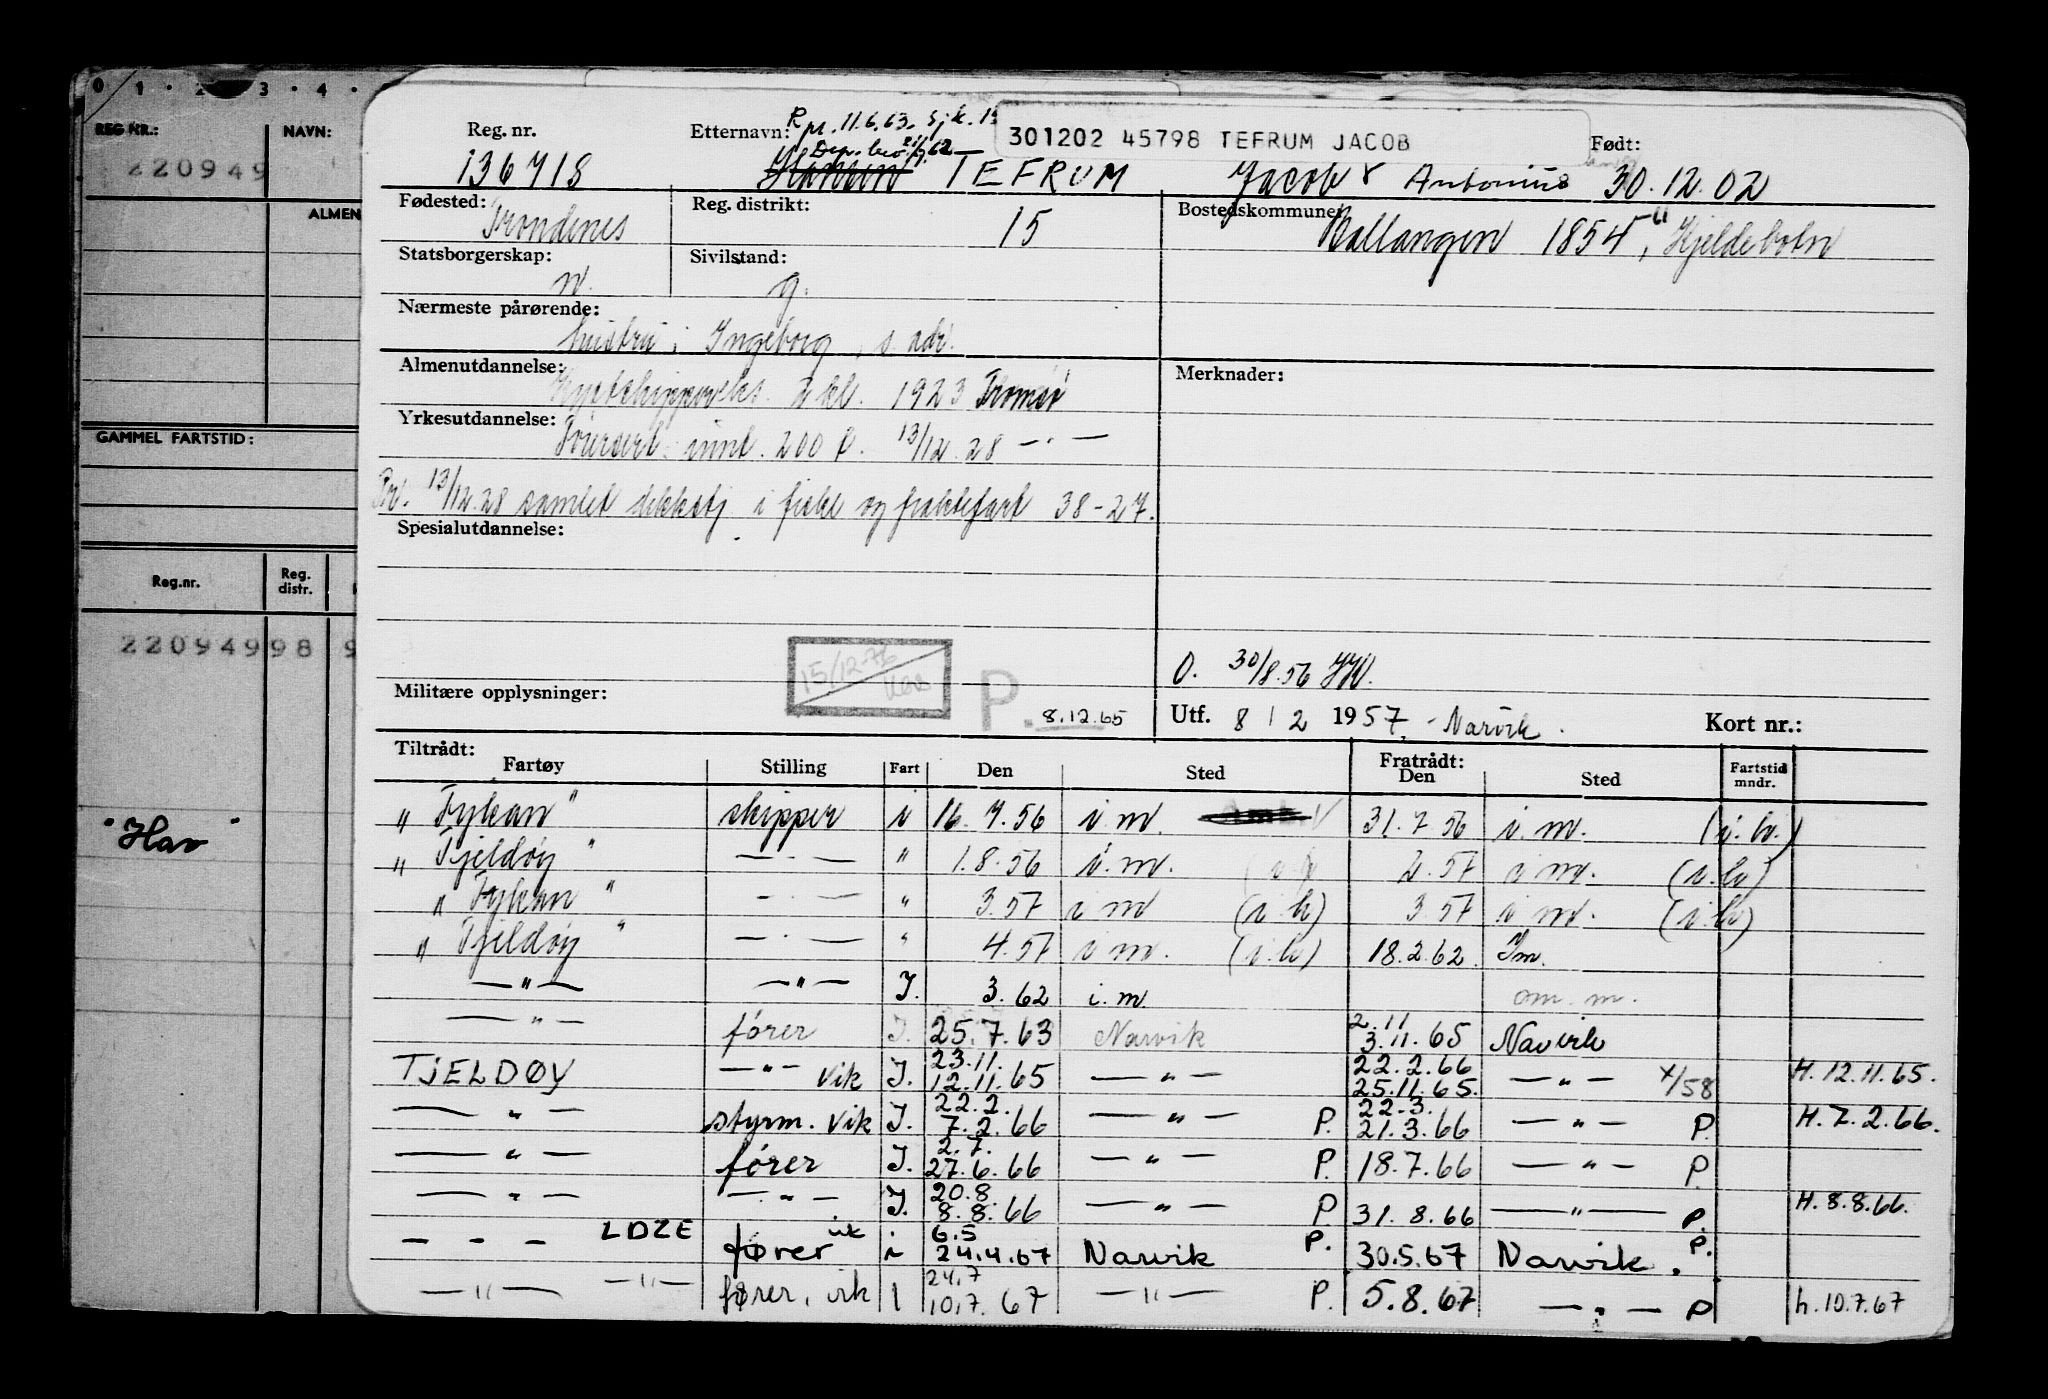 0 1 · 2 · 3 · 4 ·
REG NR.: NAVN:
220949
ALMEN
GAMMEL FARTSTID:
Reg.nr. Reg. distr.
22094998 9
"Hav"
R pr. 11.6.63. Sjk. 15
301202 45798 TEFRUM JACOB
Reg. nr. Etternavn: Født:
136718 TEFRUM Jacob Antonius 30.12.02
Fødested: Reg. distrikt: Bostedskommune:
Trondenes 15 Ballangen 1854, Kjeldebotn
Statsborgerskap: Sivilstand:
n. g.
Nærmeste pårørende:
hustru, Ingeborg, s. adr.
Almenutdannelse: Merknader:
Kystskippereks. 2 kl. 1923 Tromsø
Yrkesutdannelse:
innt. 200 t. 13/12.28 — · —
Pr. 13/12.28 samlet dekkstj. i fiske og fraktefart 38-27.
Spesialutdannelse:
15/12-76
O. 30/8.56
Militære opplysninger: P. 8.12.65 Utf. 8/2 1957, Narvik. Kort nr.:
Tiltrådt: Fratrådt:
Fartøy Stilling Fart Den Sted Den Sted Fartstid mndr.
"Fykan" skipper i 16.7.56 i.m. 31.7.56 i.m. (i.h.)
"Tjeldøy" — · — " 1.8.56 i.m. 2.57 i.m. (i.h)
"Fykan" — · — " 3.57 i m (i.h) 3.57 i m. (i.h)
"Tjeldøy" — · — " 4.57 i m. (i.h) 18.2.62. Im.
— " — — " — I. 3.62 i.m om. m.
— " — fører I. 25.7.63 Narvik 2.11 3.11.65 Narvik
TJELDØY — " — vik I. 23.11. 12.11.65 — " — 22.2.66 25.11.65. — " — x/58 H.12.11.65.
— " — styrm. vik I. 22.2. 7.2.66 — " — P. 22.3. 21.3.66 — " — P. H.7.2.66.
— " — fører I. 2.7. 27.6.66 — " — P. 18.7.66 — " — P.
— " — — " — I. 20.8 8.8.66 — " — P 31.8.66 — " — P. H.8.8.66.
— — — LDZE fører vik i 6.5 24.4.67 Narvik P. 30.5.67 Narvik. P.
— " — — " — fører, vik I 24.7 10.7.67 — " — P. 5.8.67 — " — P h.10.7.67